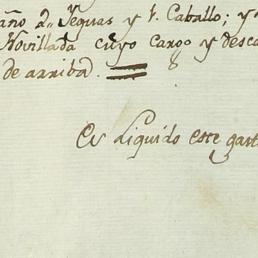 año 2.. Yeguas y 1. Caballo; y
Novillada cuyo cargo y desca
de arriba.
Es Liquido este gast